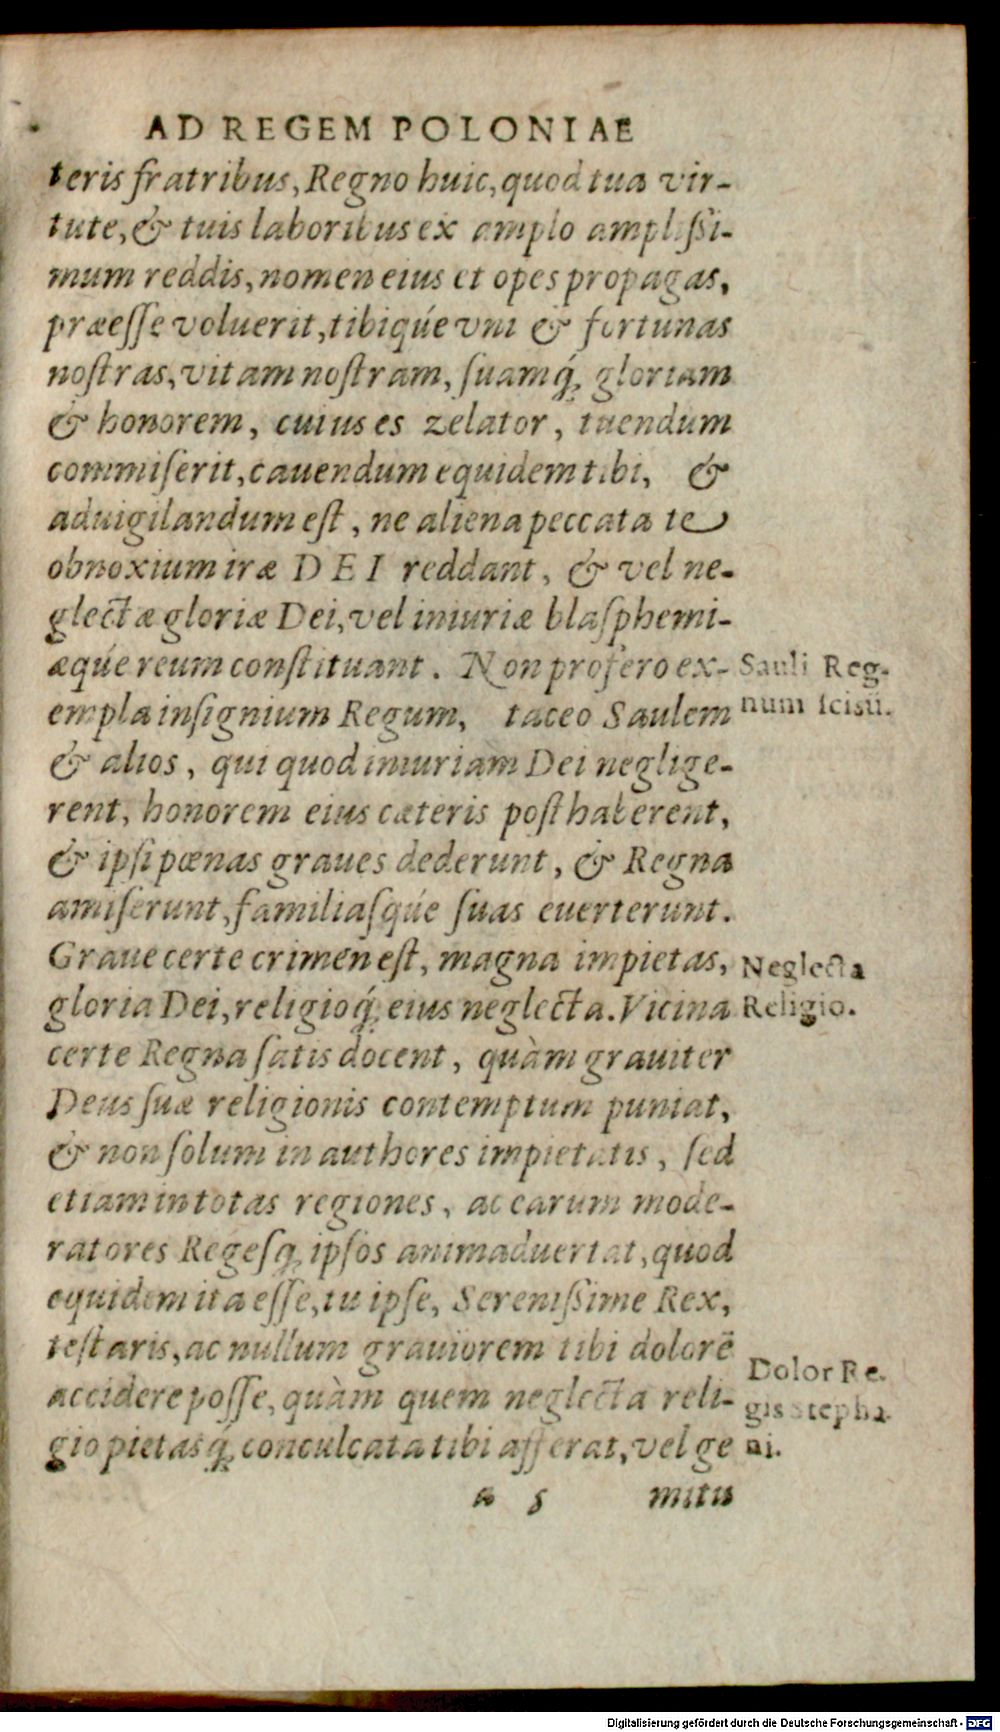 AD REGEM POLONIAE
teris fratribus, Regno huic, quod tua vir-
tute, & tuis laboribus ex amplo amplißi-
mum reddis, nomen eius et opes propagas,
præesse voluerit, tibiq́ue vni & fortunas
nostras, vitam nostram, suamq́; gloriam
& honorem, cuius es zelator, tuendum
commiserit, cauendum equidem tibi, &
aduigilandum est, ne aliena peccata te
obnoxium iræ DEI reddant, & vel ne-
glectæ gloriæ Dei, vel iniuriæ blasphemi-
æq́ue reum constituant. Non profero ex-
Sauli Reg-
empla insignium Regum, taceo Saulem
num scisũ.
& alios, qui quod iniuriam Dei neglige-
rent, honorem eius cæteris posthaberent,
& ipsi pœnas graues dederunt, & Regna
amiserunt, familiasq́ue suas euerterunt.
Graue certe crimen est, magna impietas,
Neglecta
gloria Dei, religioq́; eius neglecta. Vicina
Religio.
certe Regna satis docent, quàm grauiter
Deus suæ religionis contemptum puniat,
& non solum in authores impietatis, sed
etiam in totas regiones, ac earum mode-
ratores Regesq; ipsos animaduertat, quod
equidem ita esse, tu ipse, Serenißime Rex,
testaris, ac nullum grauiorem tibi dolorẽ
Dolor Re-
accidere posse, quàm quem neglecta reli-
gis Stepha-
gio pietasq́; conculcata tibi afferat, vel ge
ni.
a 5 mitu
Digitalisierung gefördert durch die Deutsche Forschungsgemeinschaft - DFG